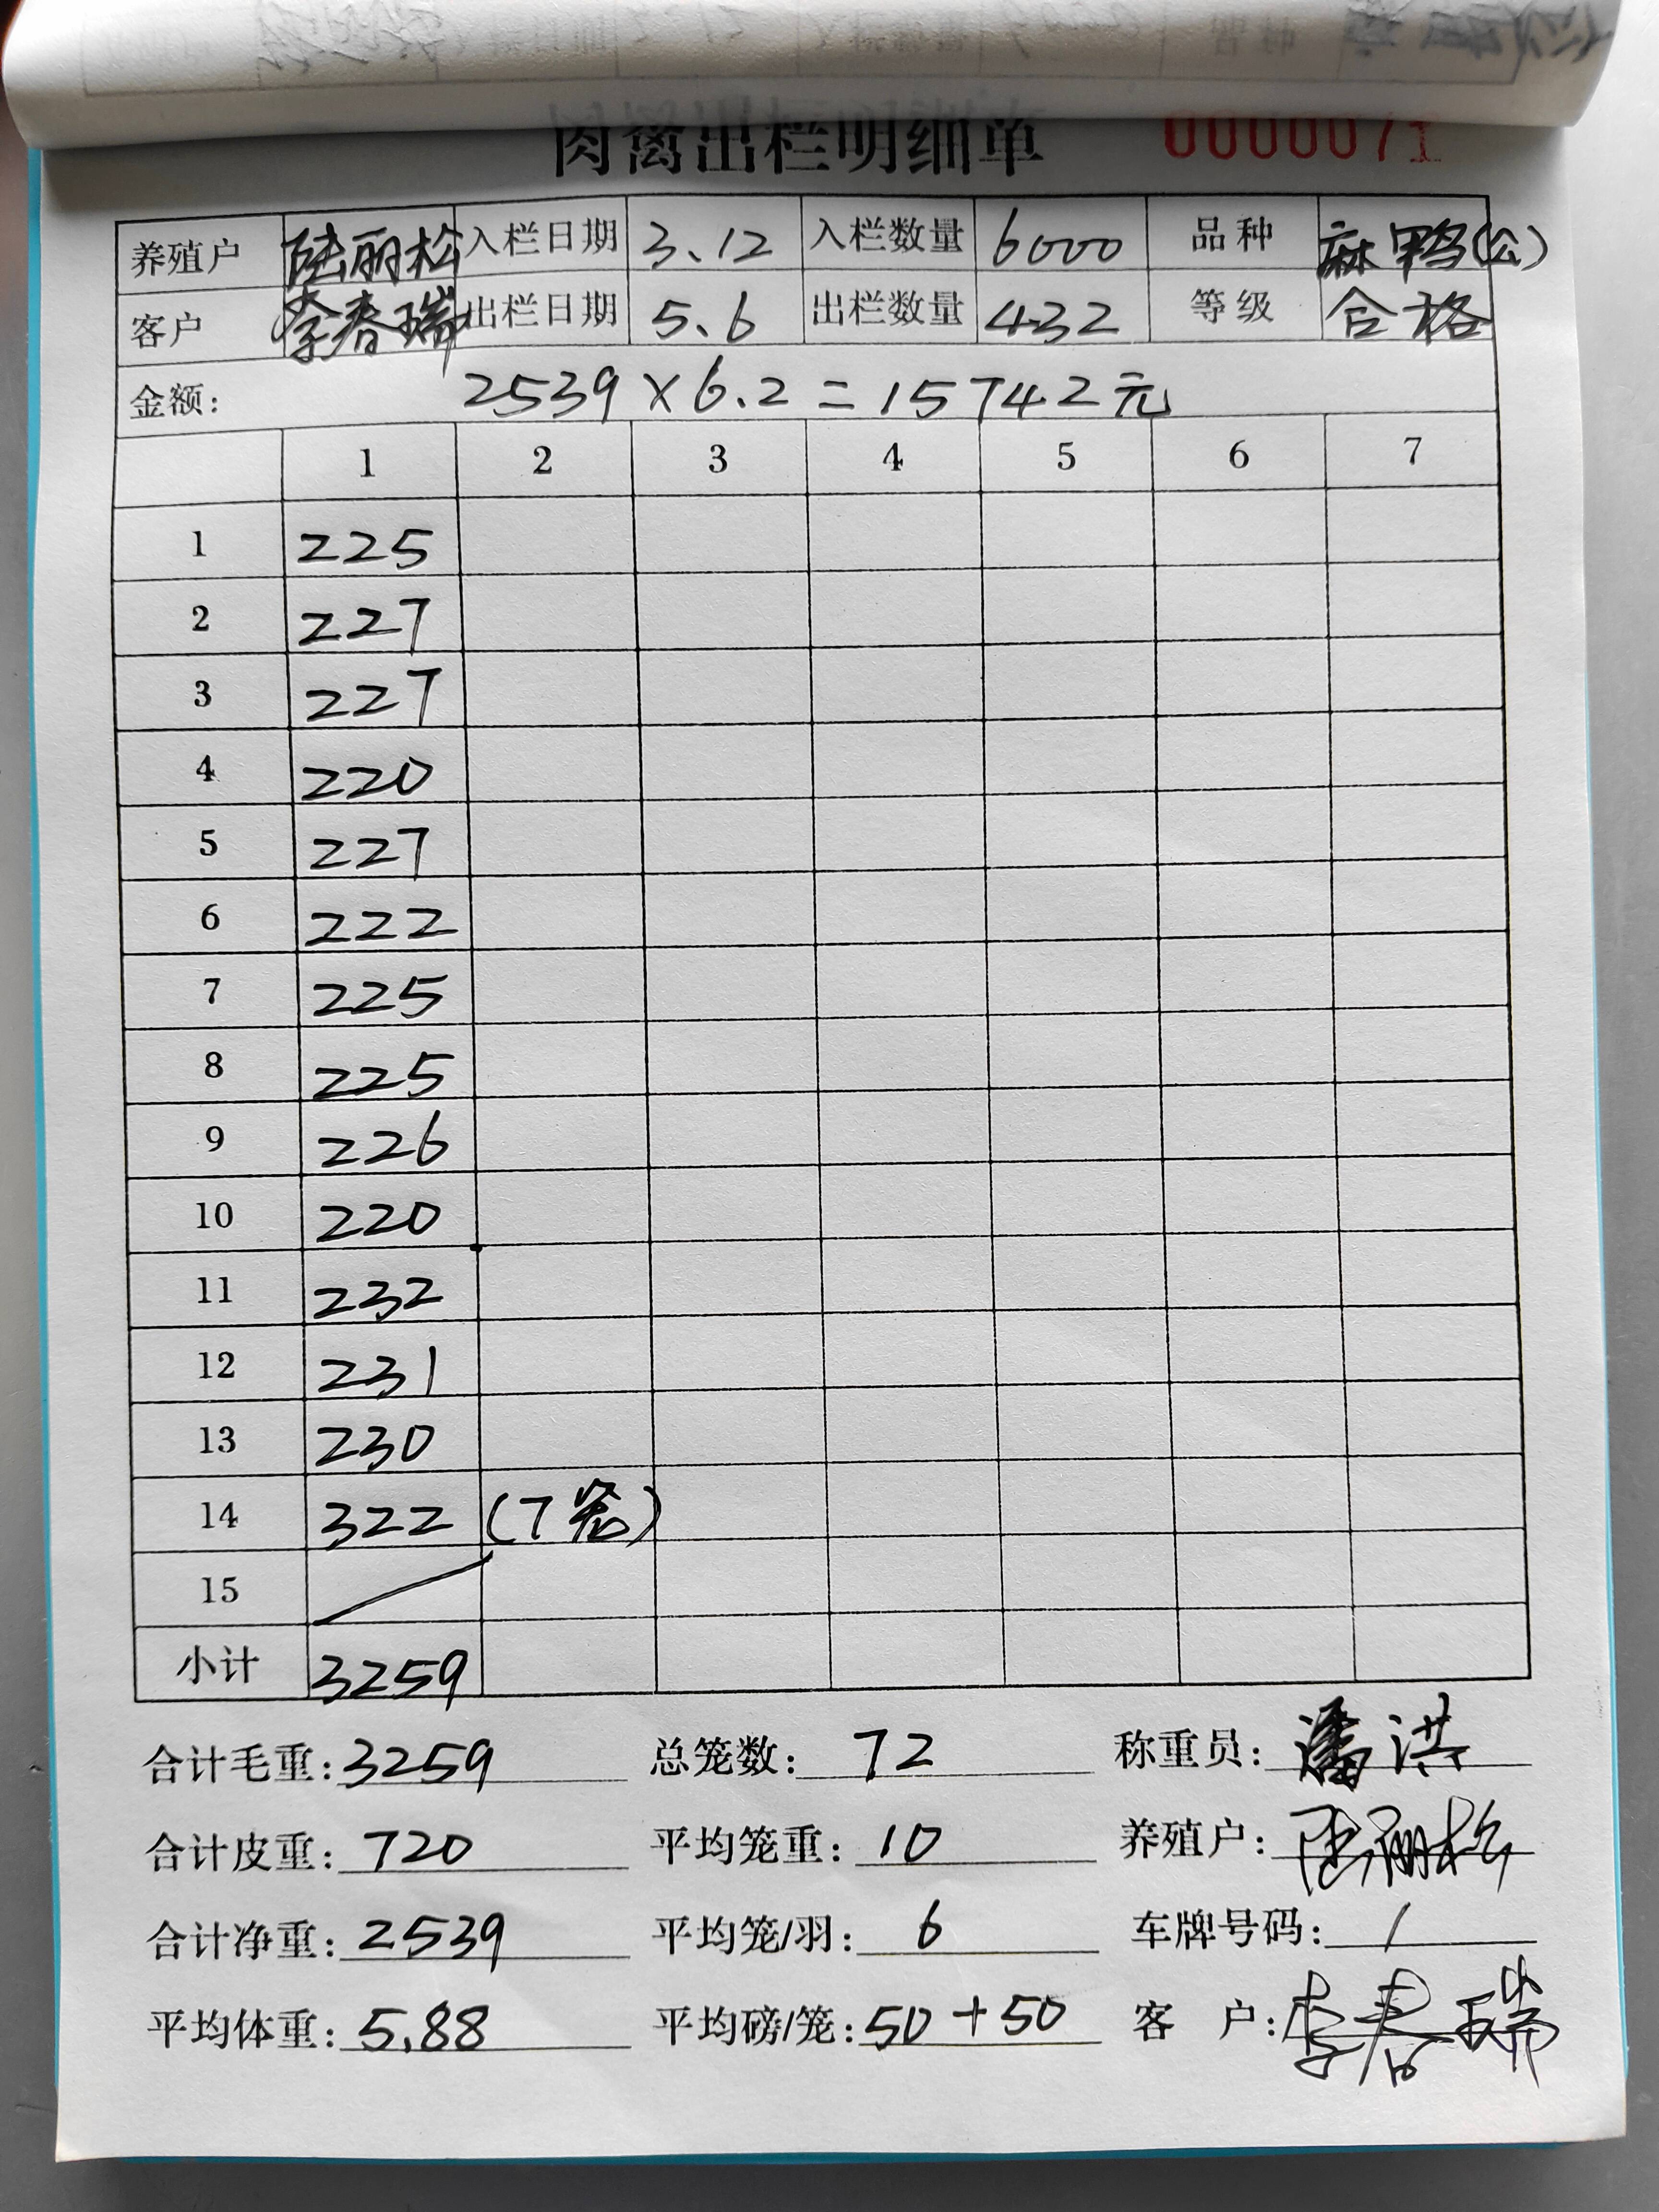 肉禽出栏明细单 0000071
养殖户 陆丽松 入栏日期 3.12 入栏数量 6000 品种 麻鸭(公)
客户 李春瑞 出栏日期 5.6 出栏数量 432 等级 合格
金额: 2539×6.2=15742元
1 2 3 4 5 6 7
1 225
2 227
3 227
4 220
5 227
6 222
7 225
8 225
9 226
10 220
11 232
12 231
13 230
14 322 (7笼)
15
小计 3259
合计毛重: 3259 总笼数: 72 称重员: 潘洪
合计皮重: 720 平均笼重: 10 养殖户: 陆丽松
合计净重: 2539 平均笼/羽: 6 车牌号码: /
平均体重: 5.88 平均磅/笼: 50+50 客户: 李春瑞